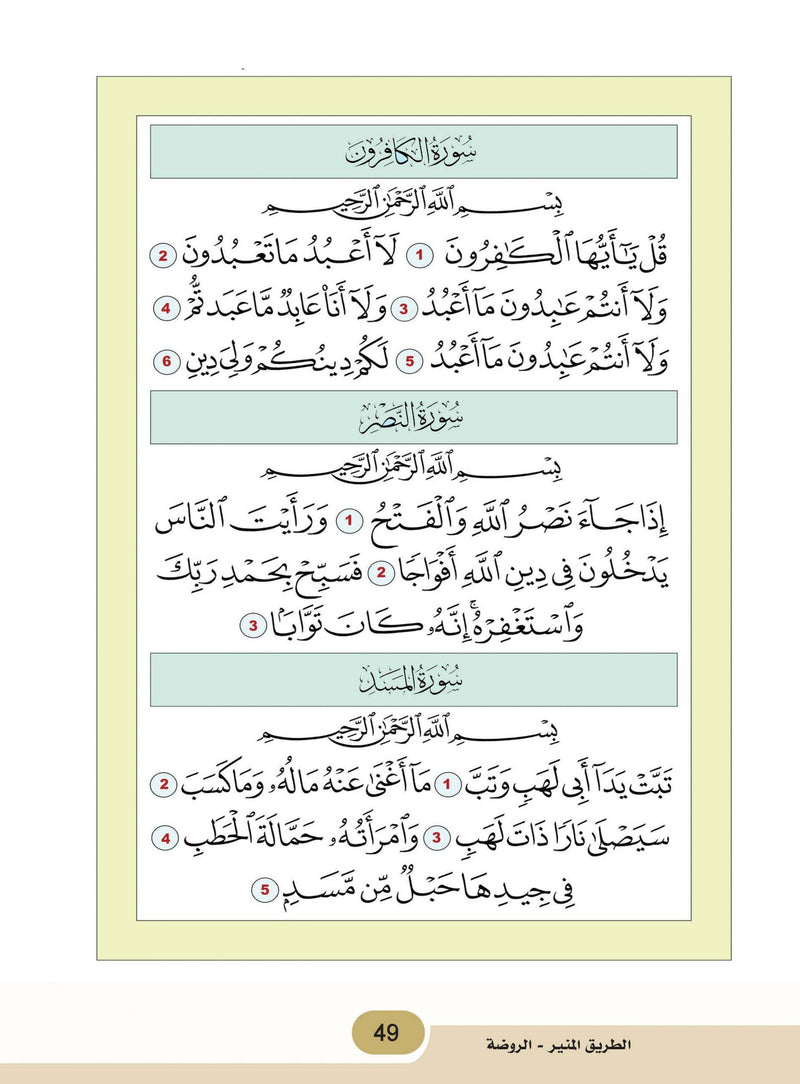 سُورَةُ الكَافِرُونَ
بِسْمِ اللَّهِ الرَّحْمَٰنِ الرَّحِيمِ
قُلْ يَٰٓأَيُّهَا ٱلْكَٰفِرُونَ 1 لَآ أَعْبُدُ مَا تَعْبُدُونَ 2
وَلَآ أَنتُمْ عَٰبِدُونَ مَآ أَعْبُدُ 3 وَلَآ أَنَا۠ عَابِدٌ مَّا عَبَدتُّمْ 4
وَلَآ أَنتُمْ عَٰبِدُونَ مَآ أَعْبُدُ 5 لَكُمْ دِينُكُمْ وَلِىَ دِينِ 6
سُورَةُ النَّصْرِ
بِسْمِ اللَّهِ الرَّحْمَٰنِ الرَّحِيمِ
إِذَا جَآءَ نَصْرُ ٱللَّهِ وَٱلْفَتْحُ 1 وَرَأَيْتَ ٱلنَّاسَ
يَدْخُلُونَ فِى دِينِ ٱللَّهِ أَفْوَاجًا 2 فَسَبِّحْ بِحَمْدِ رَبِّكَ
وَٱسْتَغْفِرْهُ ۚ إِنَّهُۥ كَانَ تَوَّابًۢا 3
سُورَةُ المَسَدِ
بِسْمِ اللَّهِ الرَّحْمَٰنِ الرَّحِيمِ
تَبَّتْ يَدَآ أَبِى لَهَبٍ وَتَبَّ 1 مَآ أَغْنَىٰ عَنْهُ مَالُهُۥ وَمَا كَسَبَ 2
سَيَصْلَىٰ نَارًا ذَاتَ لَهَبٍ 3 وَٱمْرَأَتُهُۥ حَمَّالَةَ ٱلْحَطَبِ 4
فِى جِيدِهَا حَبْلٌ مِّن مَّسَدٍۭ 5
49
الطريق المنير - الروضة